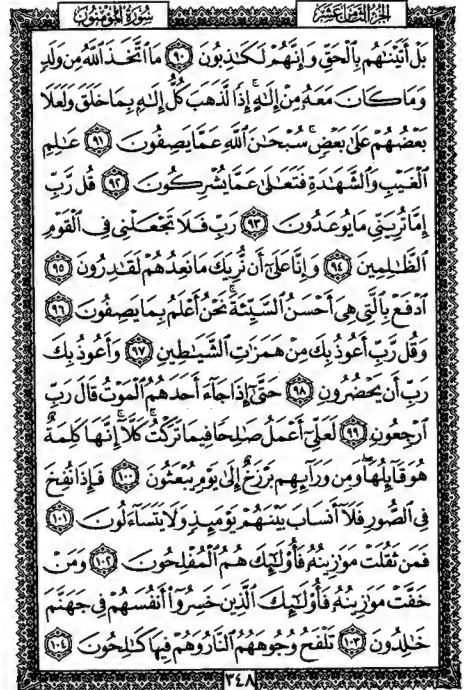 سُورَةُ المُؤْمِنُونَ الجُزْءُ الثَّامِنَ عَشَرَ
بَلْ أَتَيْنَٰهُم بِٱلْحَقِّ وَإِنَّهُمْ لَكَٰذِبُونَ ٩٠ مَا ٱتَّخَذَ ٱللَّهُ مِن وَلَدٍ
وَمَا كَانَ مَعَهُۥ مِنْ إِلَٰهٍ ۚ إِذًا لَّذَهَبَ كُلُّ إِلَٰهٍۭ بِمَا خَلَقَ وَلَعَلَا
بَعْضُهُمْ عَلَىٰ بَعْضٍ ۚ سُبْحَٰنَ ٱللَّهِ عَمَّا يَصِفُونَ ٩١ عَٰلِمِ
ٱلْغَيْبِ وَٱلشَّهَٰدَةِ فَتَعَٰلَىٰ عَمَّا يُشْرِكُونَ ٩٢ قُل رَّبِّ
إِمَّا تُرِيَنِّي مَا يُوعَدُونَ ٩٣ رَبِّ فَلَا تَجْعَلْنِي فِي ٱلْقَوْمِ
ٱلظَّٰلِمِينَ ٩٤ وَإِنَّا عَلَىٰٓ أَن نُّرِيَكَ مَا نَعِدُهُمْ لَقَٰدِرُونَ ٩٥
ٱدْفَعْ بِٱلَّتِي هِيَ أَحْسَنُ ٱلسَّيِّئَةَ ۚ نَحْنُ أَعْلَمُ بِمَا يَصِفُونَ ٩٦
وَقُل رَّبِّ أَعُوذُ بِكَ مِنْ هَمَزَٰتِ ٱلشَّيَٰطِينِ ٩٧ وَأَعُوذُ بِكَ
رَبِّ أَن يَحْضُرُونِ ٩٨ حَتَّىٰٓ إِذَا جَآءَ أَحَدَهُمُ ٱلْمَوْتُ قَالَ رَبِّ
ٱرْجِعُونِ ٩٩ لَعَلِّيٓ أَعْمَلُ صَٰلِحًا فِيمَا تَرَكْتُ ۚ كَلَّآ ۚ إِنَّهَا كَلِمَةٌ
هُوَ قَآئِلُهَا ۖ وَمِن وَرَآئِهِم بَرْزَخٌ إِلَىٰ يَوْمِ يُبْعَثُونَ ١٠٠ فَإِذَا نُفِخَ
فِي ٱلصُّورِ فَلَآ أَنسَابَ بَيْنَهُمْ يَوْمَئِذٍ وَلَا يَتَسَآءَلُونَ ١٠١
فَمَن ثَقُلَتْ مَوَٰزِينُهُۥ فَأُو۟لَٰٓئِكَ هُمُ ٱلْمُفْلِحُونَ ١٠٢ وَمَنْ
خَفَّتْ مَوَٰزِينُهُۥ فَأُو۟لَٰٓئِكَ ٱلَّذِينَ خَسِرُوٓا۟ أَنفُسَهُمْ فِي جَهَنَّمَ
خَٰلِدُونَ ١٠٣ تَلْفَحُ وُجُوهَهُمُ ٱلنَّارُ وَهُمْ فِيهَا كَٰلِحُونَ ١٠٤
٣٤٨